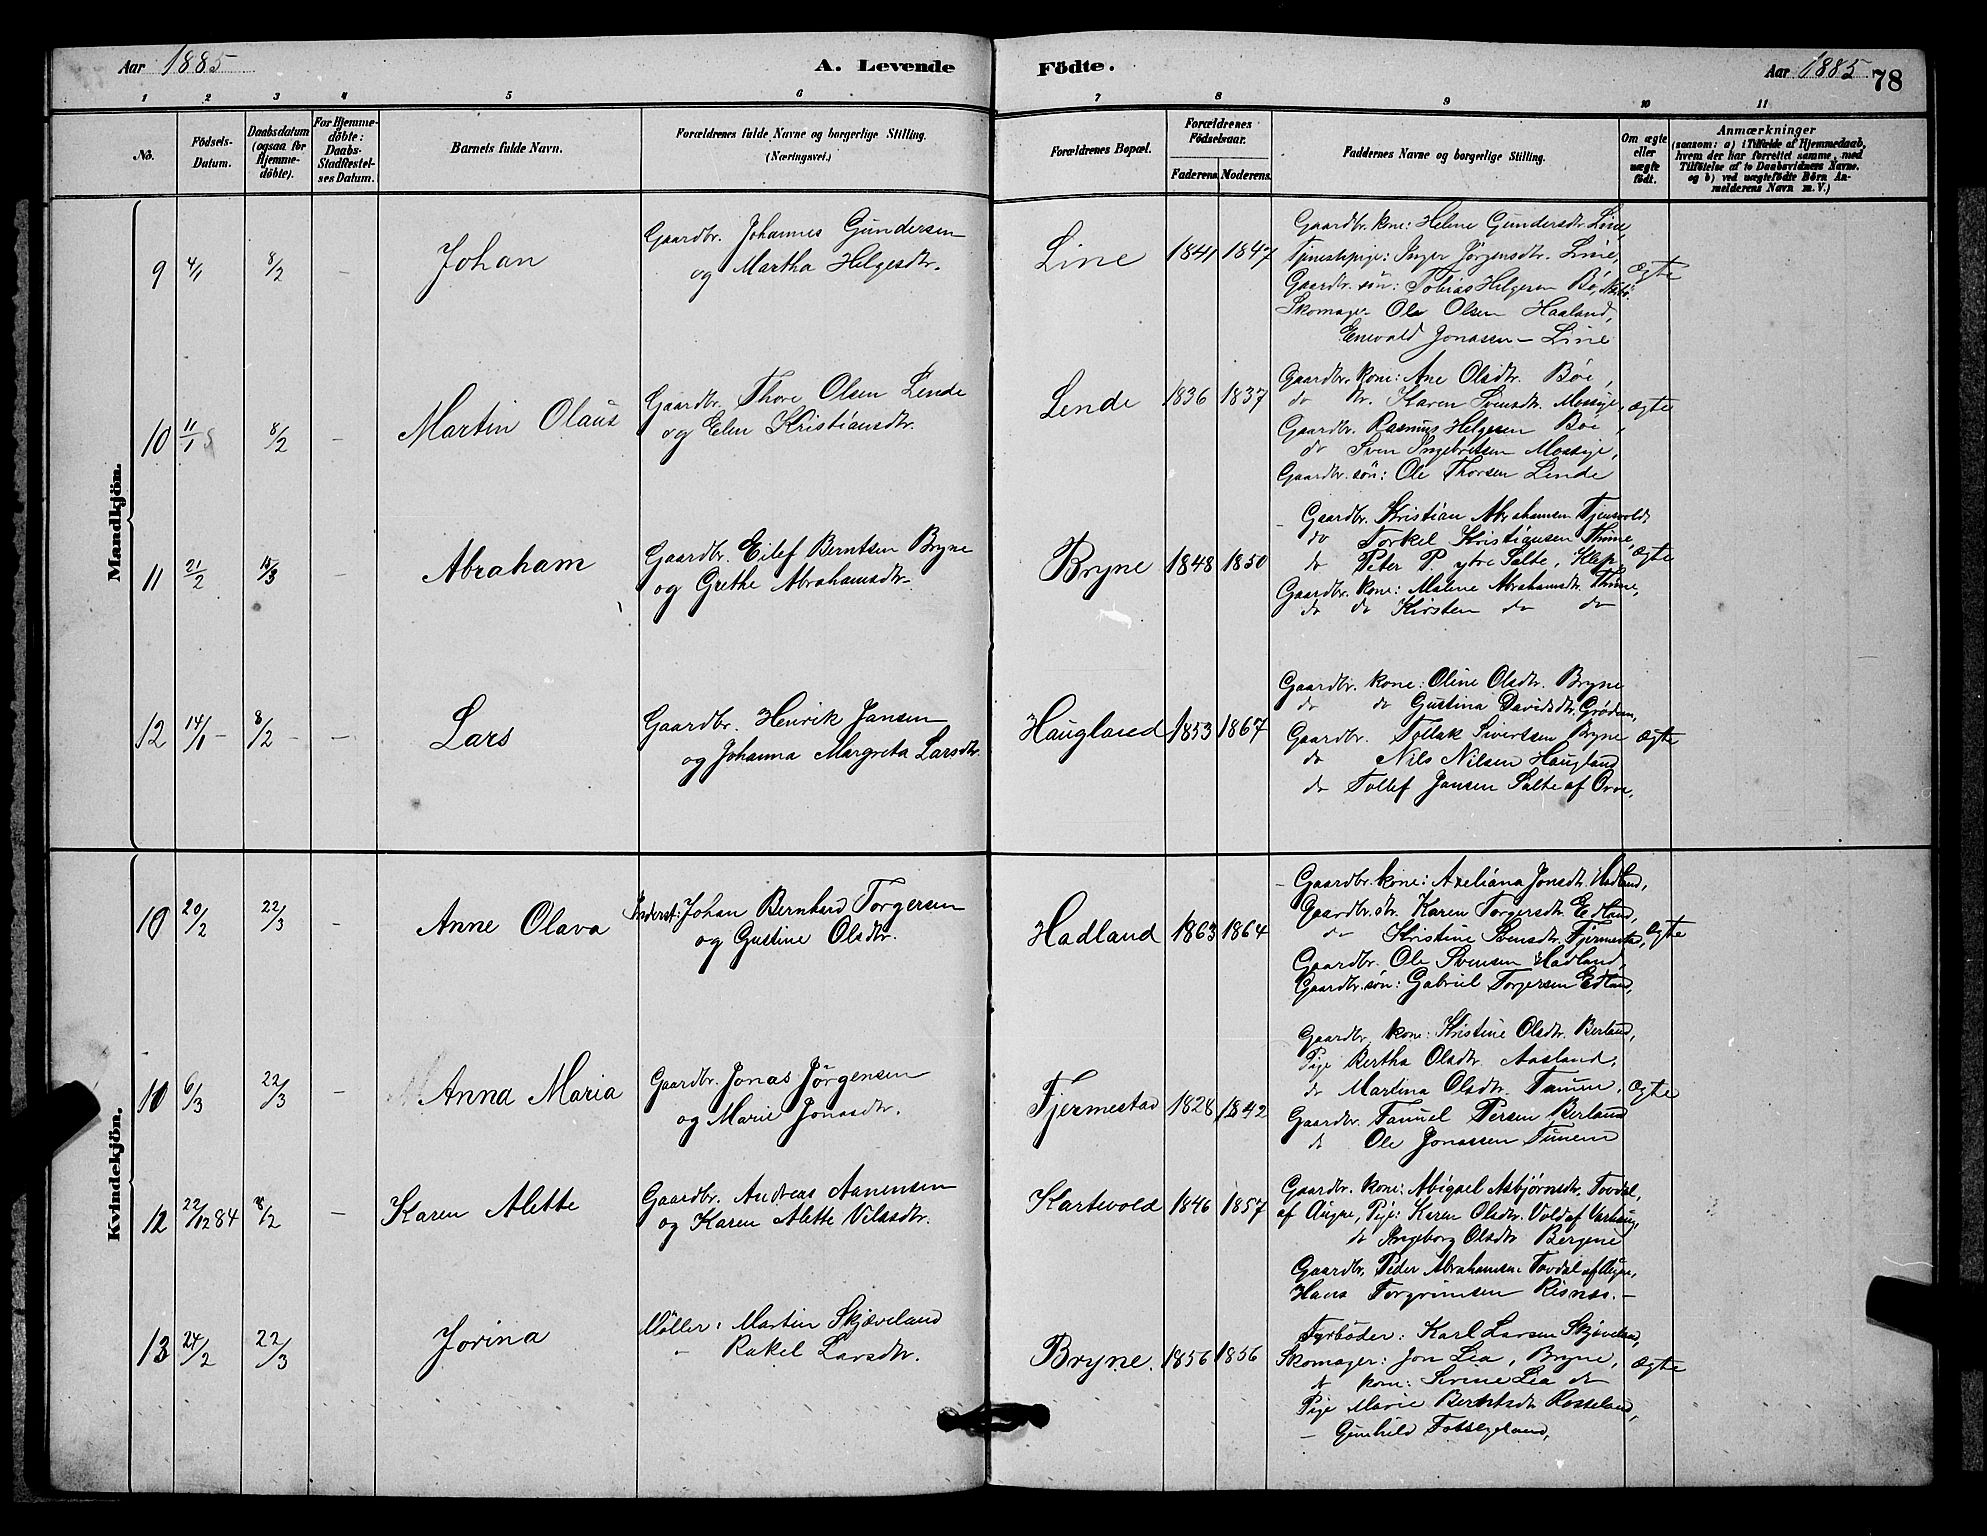 Aar 1885
A. Levende
Födte.
Aar 1885
78
1 2 3 4 5 6 7 8 9 10 11
No.
Födsels-
Datum.
Daabsdatum
(ogsaa for
Hjemme-
döbte).
For Hjemme-
döbte:
Daabs-
Stadfestel-
ses Datum.
Barnets fulde Navn.
Forældrenes fulde Navne og borgerlige Stilling.
(Næringsvei.)
Forældrenes Bopæl.
Forældrenes
Födselsaar.
Faderens. Moderens.
Faddernes Navne og borgerlige Stilling.
Om ægte
eller
uægte
födt.
Anmærkninger
(saasom: a) i Tilfælde af Hjemmedaab,
hvem der har forrettet samme, med
Tilföielse af to Daabsvidners Navne.
og b) ved uægtefödte Börn An-
melderens Navn m. V.)
Mandkjön.
9 4/1 8/2 – Johan
Gaardbr. Johannes Gundersen
og Martha Helgesdtr.
Line 1841 1847
Gaardbr. kone: Helene Gundersdtr. Line,
Tjenestepige: Inger Jørgensdtr. Line,
Gaardbr. søn: Tobias Helgesen Bø,
Skomager Ole Olsen Haaland,
Enevald Jonassen – Line
ægte
10 11/1 8/2 – Martin Olaus
Gaardbr. Thore Olsen Lende
og Elen Kristiansdtr.
Lende 1836 1837
Gaardbr. kone: Ane Olsdtr. Bøe,
do Karen Svensdtr. Mossige,
Gaardbr. Rasmus Helgesen Bøe,
do Sven Ingebretsen Mossige,
Gaardbr. søn: Ole Thorsen Lende
ægte
11 21/2 – Abraham
Gaardbr. Eilef Berntsen Bryne
og Grethe Abrahamsdtr.
Bryne 1848 1850
Gaardbr. Kristian Abrahamsen
do Torkel Kristiansen Thime,
do Peter P. ytre Salte, Klep
Gaardbr. kone: Malene Abrahamsdtr. Thime,
do do Kirsten do do
ægte
12 14/1 – 8/2 – – Lars
Gaardbr. Henrik Jansen
og Johanna Margreta Larsdtr.
Haugland 1853 1867
Gaardbr. kone: Oline Olsdtr. Bryne
do do Gustina Davidsdtr. Grødem,
Gaardbr. Tollak Sivertsen Bryne
do Nils Nilsen Haugland
do Tollef Jansen Salte af Orre,
ægte
Kvindekjön.
10 20/2 22/3 – Anne Olava
Inderst: Johan Bernhard Torgersen
og Gustine Olsdtr.
Hadland 1863 1864
– Gaardbr. kone: Axeliana Jonsdtr. Hadland,
Gaardbr. dtr. Karen Torgersdtr. Edland,
do Kristine Svensdtr. Fjermestad,
Gaardbr. Ole Svensen Hadland,
Gaardbr. søn: Gabriel Torgersen Edland,
ægte
10 6/3 22/3 – Anna Maria
Gaardbr. Jonas Jørgensen
og Marie Jonasdtr.
Fjermestad 1828 1842
Gaardbr. kone: Kristine Olsdtr. Berland,
Pige Bertha Olsdtr. Aasland,
do Martina Olsdtr. Tunem,
Gaardbr. Tanuel Persen Berland
do Ole Jonassen Tunem
ægte
12 22/12 84 8/2 – Karen Alette
Gaardbr. Andreas Aanensen
og Karen Alette Vilasdtr.
Kartevold 1846 1857
Gaardbr. kone: Abigael Asbjørnsdtr. Tovdal,
af Augne, Pige: Karen Olsdtr. Vold af Varhaug,
do Ingeborg Olsdtr. Bergene
Gaardbr. Peder Abrahamsen Tovdal af Augne,
Hans Torgrimsen Risnæs. –
13 24/2 22/3 Jorina
Møller: Martin Skjæveland
– Rakel Larsdtr.
Bryne. 1856 1856
Fyrbøder: Karl Larsen Skjæveland
Skomager: Jon Lea, Bryne,
do kone: Serine Lea do
Pige Marie Berntsdtr. Rosseland,
– Gunhild
ægte